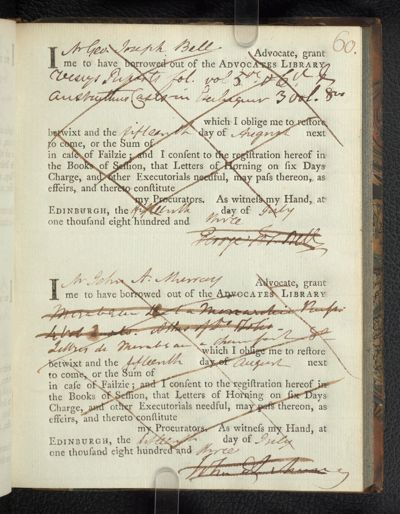 60.
I Mr Geo. Joseph Bell Advocate, grant
me to have borrowed out of the ADVOCATES LIBRARY
fol. vol 3
Cases in Exchequer 3 vol. 8vo
which I oblige me to restore
betwixt and the fifteenth day of August next
to come, or the Sum of
in case of Failzie; and I consent to the registration hereof in
the Books of Session, that Letters of Horning on six Days
Charge, and other Executorials needful, may pass thereon, as
effeirs, and thereto constitute
my Procurators. As witness my Hand, at
EDINBURGH, the fifteenth day of July
one thousand eight hundred and three
George Jos. Bell
I Mr John A. Murray Advocate, grant
me to have borrowed out of the ADVOCATES LIBRARY
Mirabeau
Lettres de Mirabeau a
which I oblige me to restore
betwixt and the fifteenth day of August next
to come, or the Sum of
in case of Failzie; and I consent to the registration hereof in
the Books of Session, that Letters of Horning on six Days
Charge, and other Executorials needful, may pass thereon, as
effeirs, and thereto constitute
my Procurators. As witness my Hand, at
EDINBURGH, the fifteenth day of July
one thousand eight hundred and three
John A. Murray